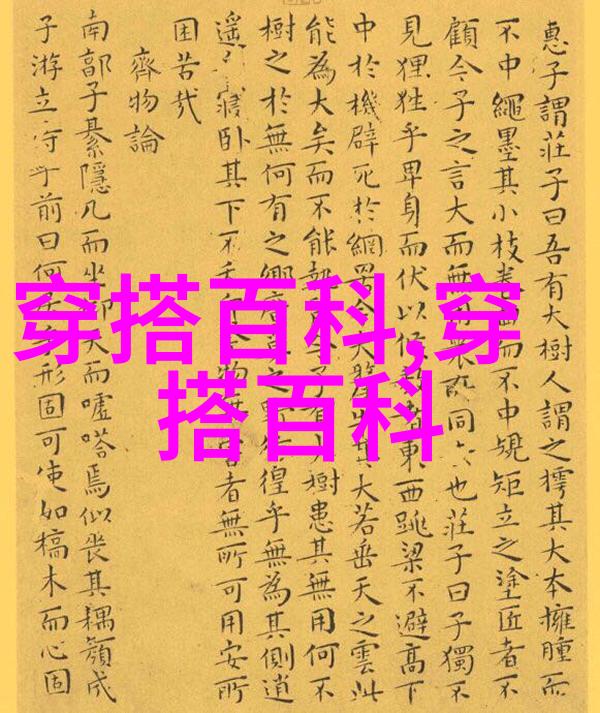 穿搭百科,穿
搭百科
惠子謂莊子曰吾有大樹人謂之樗其大本擁腫而
不中繩墨其小枝卷而不中規矩立之塗匠者不
顧今子之言大而無衆所同也莊子曰子獨不
見狸狌乎卑身而伏以候者東西跳梁不避高下
中於機辟死於網罟今夫其大若垂天之雲此
能為大矣而不能執今子有大樹患其無用何不
樹之於無何有之鄉廣之徨乎無為其側逍
遥寢卧其下不物害者無所可用安所
困苦哉
齊物論
南郭子綦隱几而坐仰天而嘘嗒焉似喪其耦顏成
子游立侍乎前曰何乎形固可使如槁木而心固